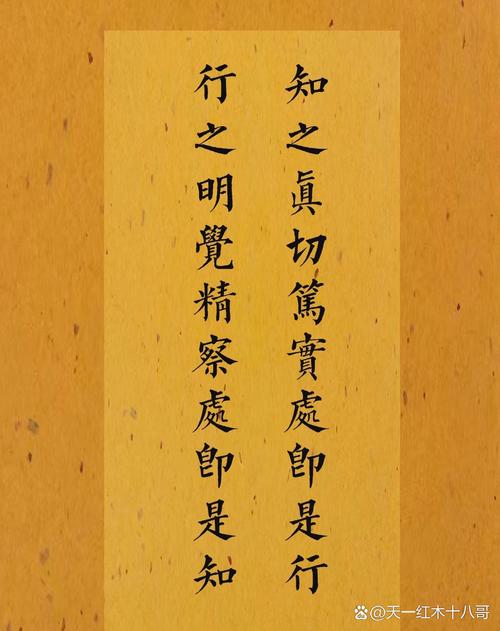 知之眞切篤實處卽是行
行之明覺精察處卽是知
天一红木十八哥